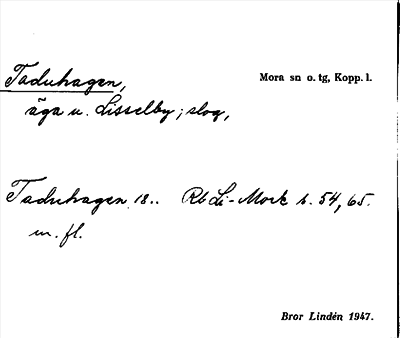 Taduhagen,
Mora sn o. tg, Kopp. l.
äga u. Lisselby; slog,
Taduhagen 18.. Rb Li-Mork s. 54, 65.
m. fl.
Bror Lindén 1947.